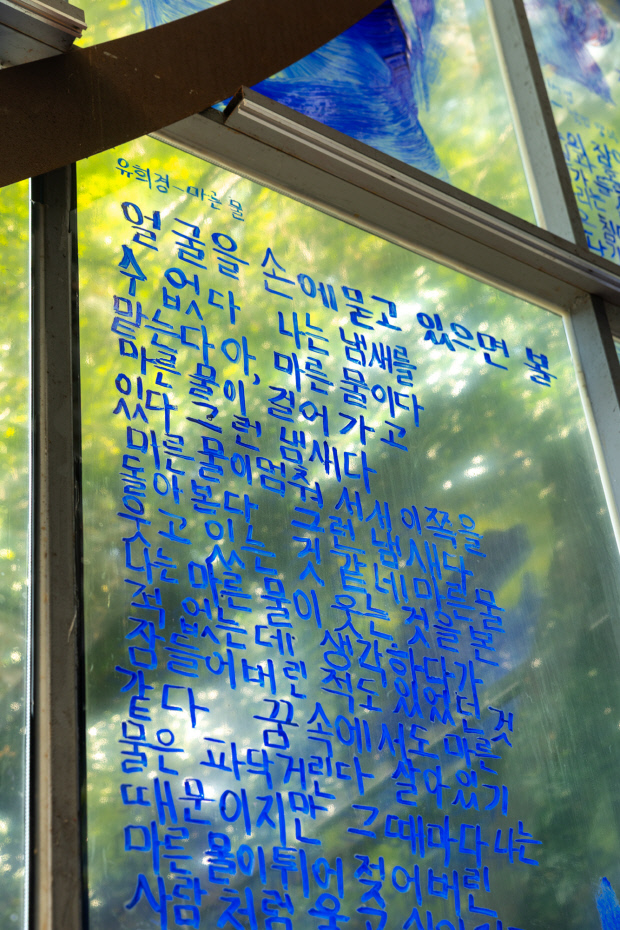 유희경 - 마른 물
얼굴을 손에 묻고 있으면 볼
수 없다 나는 냄새를
맡는다 아, 마른 물이다
마른 물이 걸어가고
있다 그런 냄새다
마른 물이 멈춰 서서 이쪽을
돌아본다 그런 냄새나
웃고 있는 것 같네 마른 물
나는 마른 물이 웃는 것을 본
적 없는데 생각하다가
잠들어버린 적도 있었던 것
같다 꿈 속에서도 마른
물은 파닥거린다 살아있기
때문이지만 그때마다 나는
마른 물이 튀어 젖어버린
사람처럼 웃고